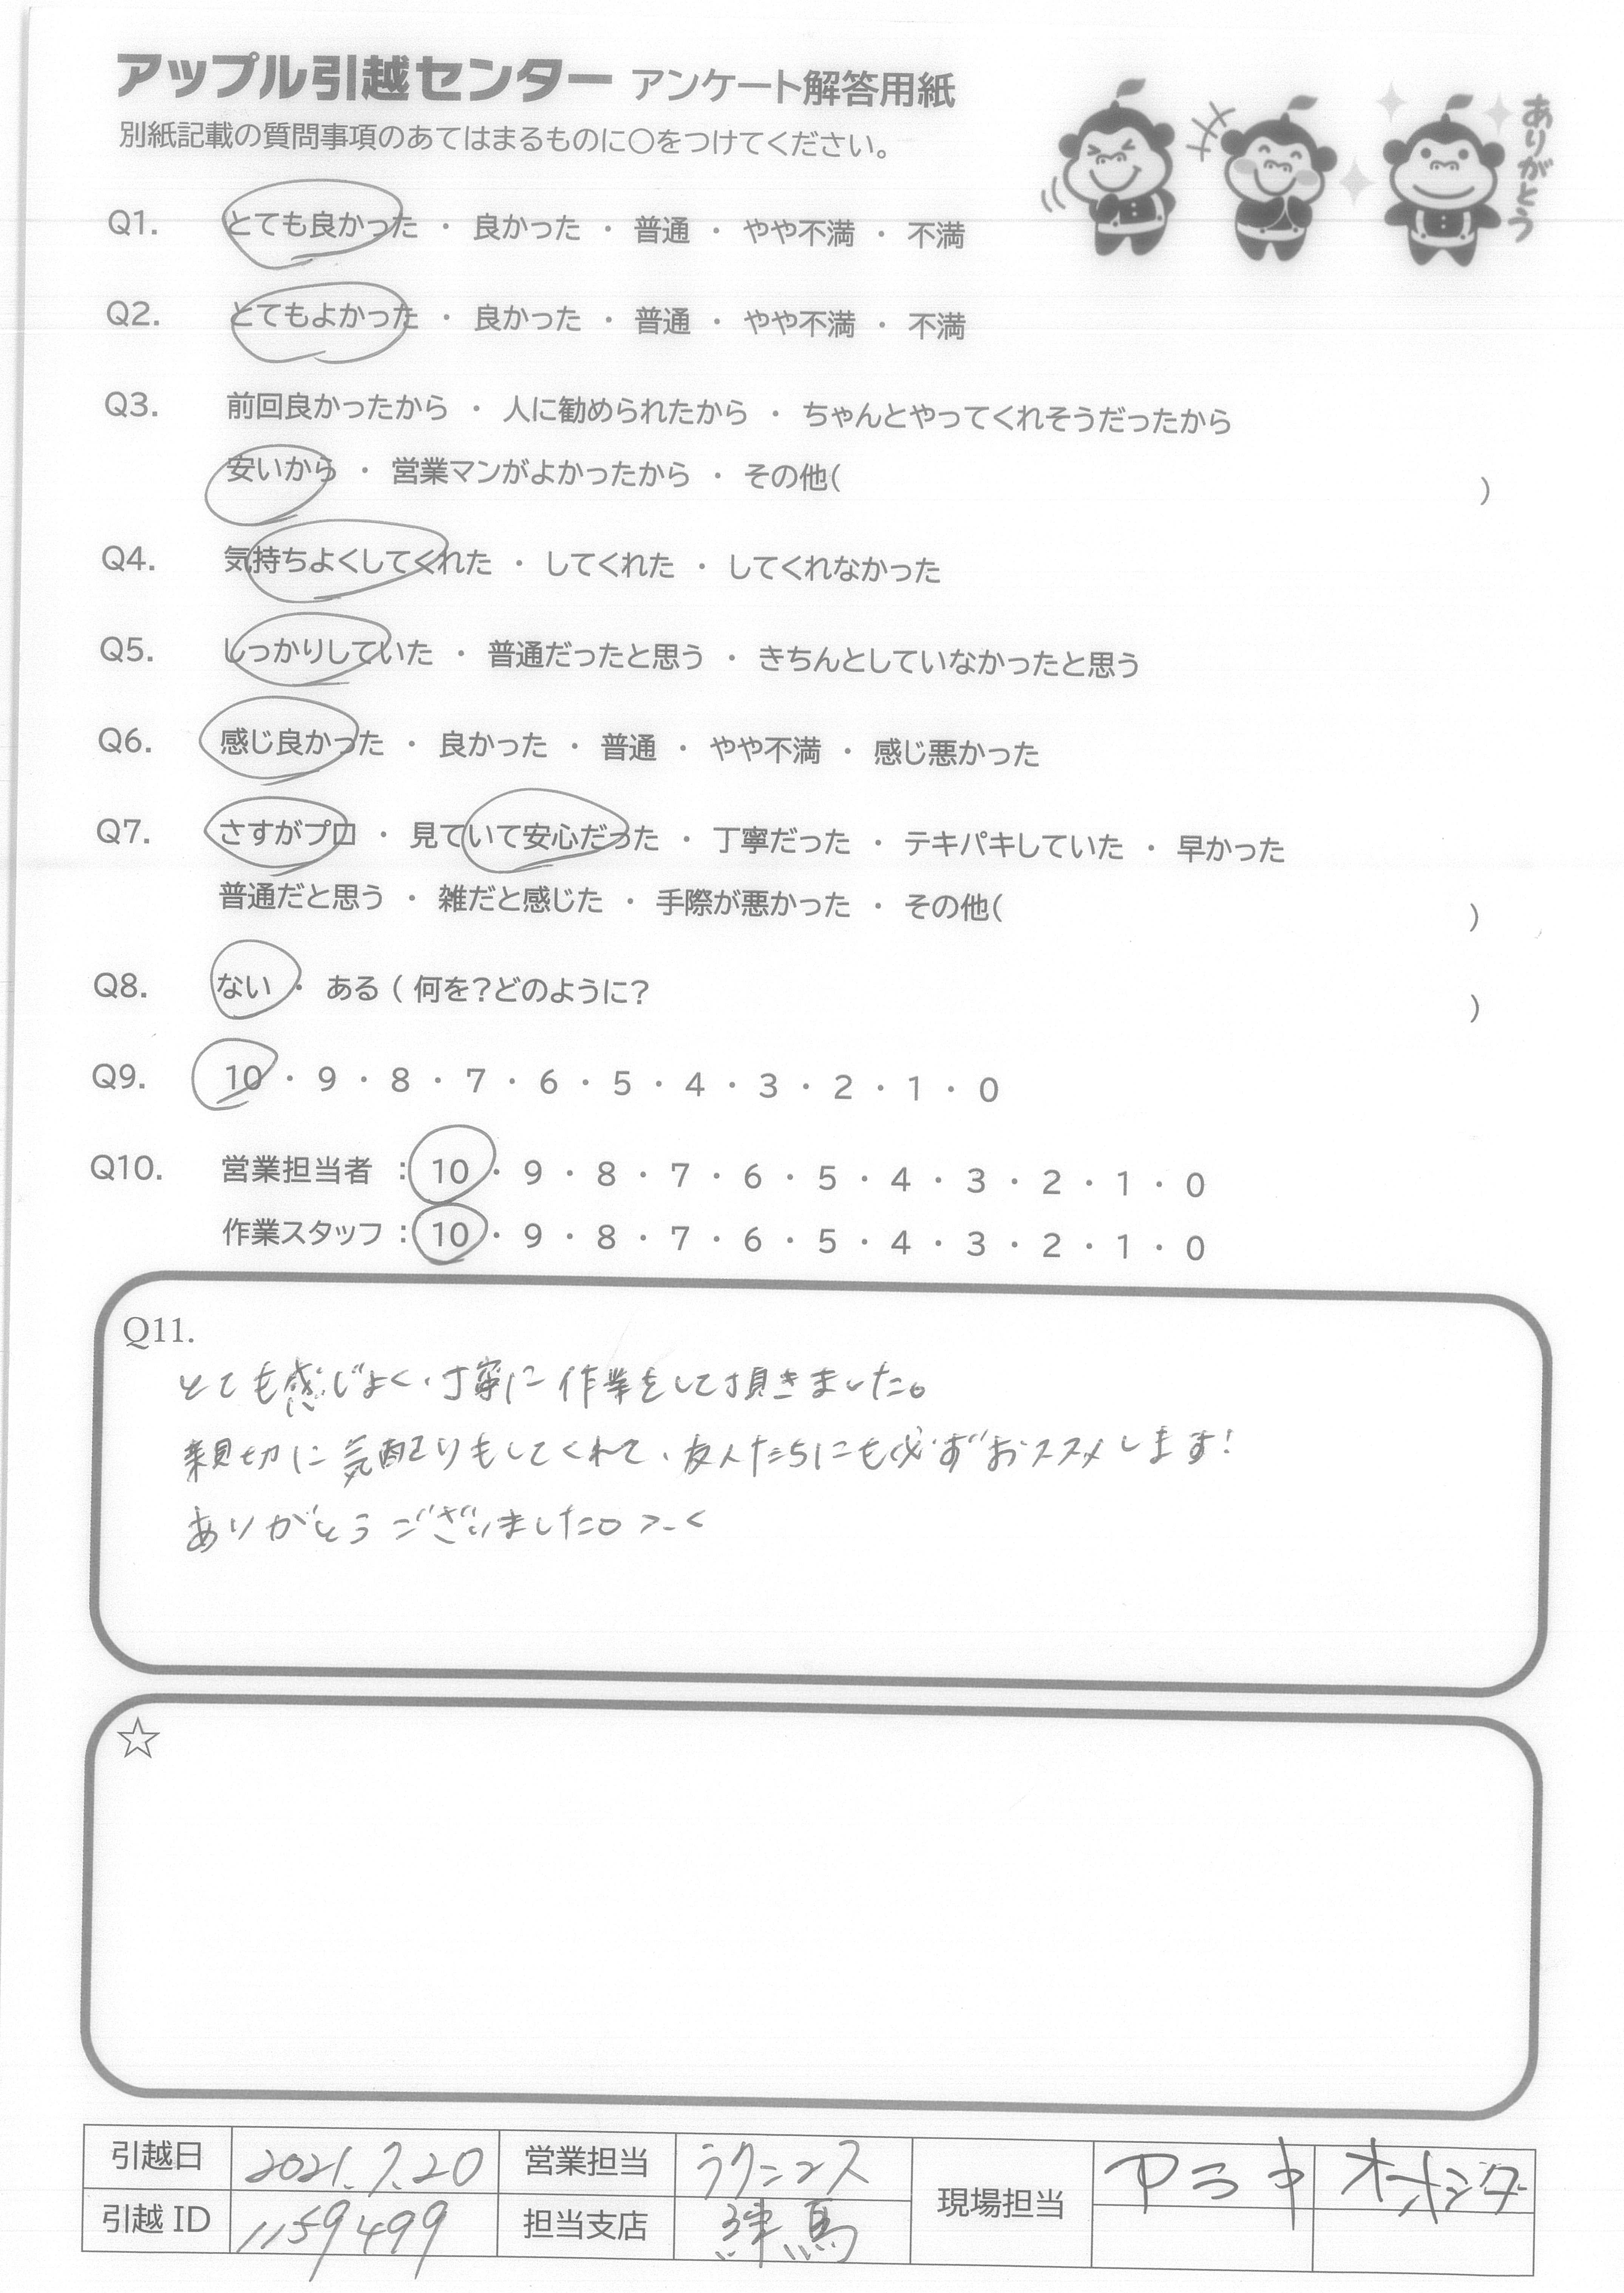 アップル引越センター アンケート解答用紙
別紙記載の質問事項のあてはまるものに○をつけてください。
ありがとう
Q1. とても良かった ・ 良かった ・ 普通 ・ やや不満 ・ 不満
Q2. とてもよかった ・ 良かった ・ 普通 ・ やや不満 ・ 不満
Q3. 前回良かったから ・ 人に勧められたから ・ ちゃんとやってくれそうだったから
安いから ・ 営業マンがよかったから ・ その他( )
Q4. 気持ちよくしてくれた ・ してくれた ・ してくれなかった
Q5. しっかりしていた ・ 普通だったと思う ・ きちんとしていなかったと思う
Q6. 感じ良かった ・ 良かった ・ 普通 ・ やや不満 ・ 感じ悪かった
Q7. さすがプロ ・ 見ていて安心だった ・ 丁寧だった ・ テキパキしていた ・ 早かった
普通だと思う ・ 雑だと感じた ・ 手際が悪かった ・ その他( )
Q8. ない ・ ある ( 何を?どのように? )
Q9. 10 ・ 9 ・ 8 ・ 7 ・ 6 ・ 5 ・ 4 ・ 3 ・ 2 ・ 1 ・ 0
Q10. 営業担当者 : 10 ・ 9 ・ 8 ・ 7 ・ 6 ・ 5 ・ 4 ・ 3 ・ 2 ・ 1 ・ 0
作業スタッフ : 10 ・ 9 ・ 8 ・ 7 ・ 6 ・ 5 ・ 4 ・ 3 ・ 2 ・ 1 ・ 0
Q11.
とても感じよく、丁寧に作業をして頂きました。
親切に気配りもしてくれて、友人たちにも必ずおススメします!
ありがとうございました。>_<
☆
引越日 2021.7.20 営業担当 ラクニコス 現場担当 アラキ オオシタ
引越 ID 1159499 担当支店 練馬